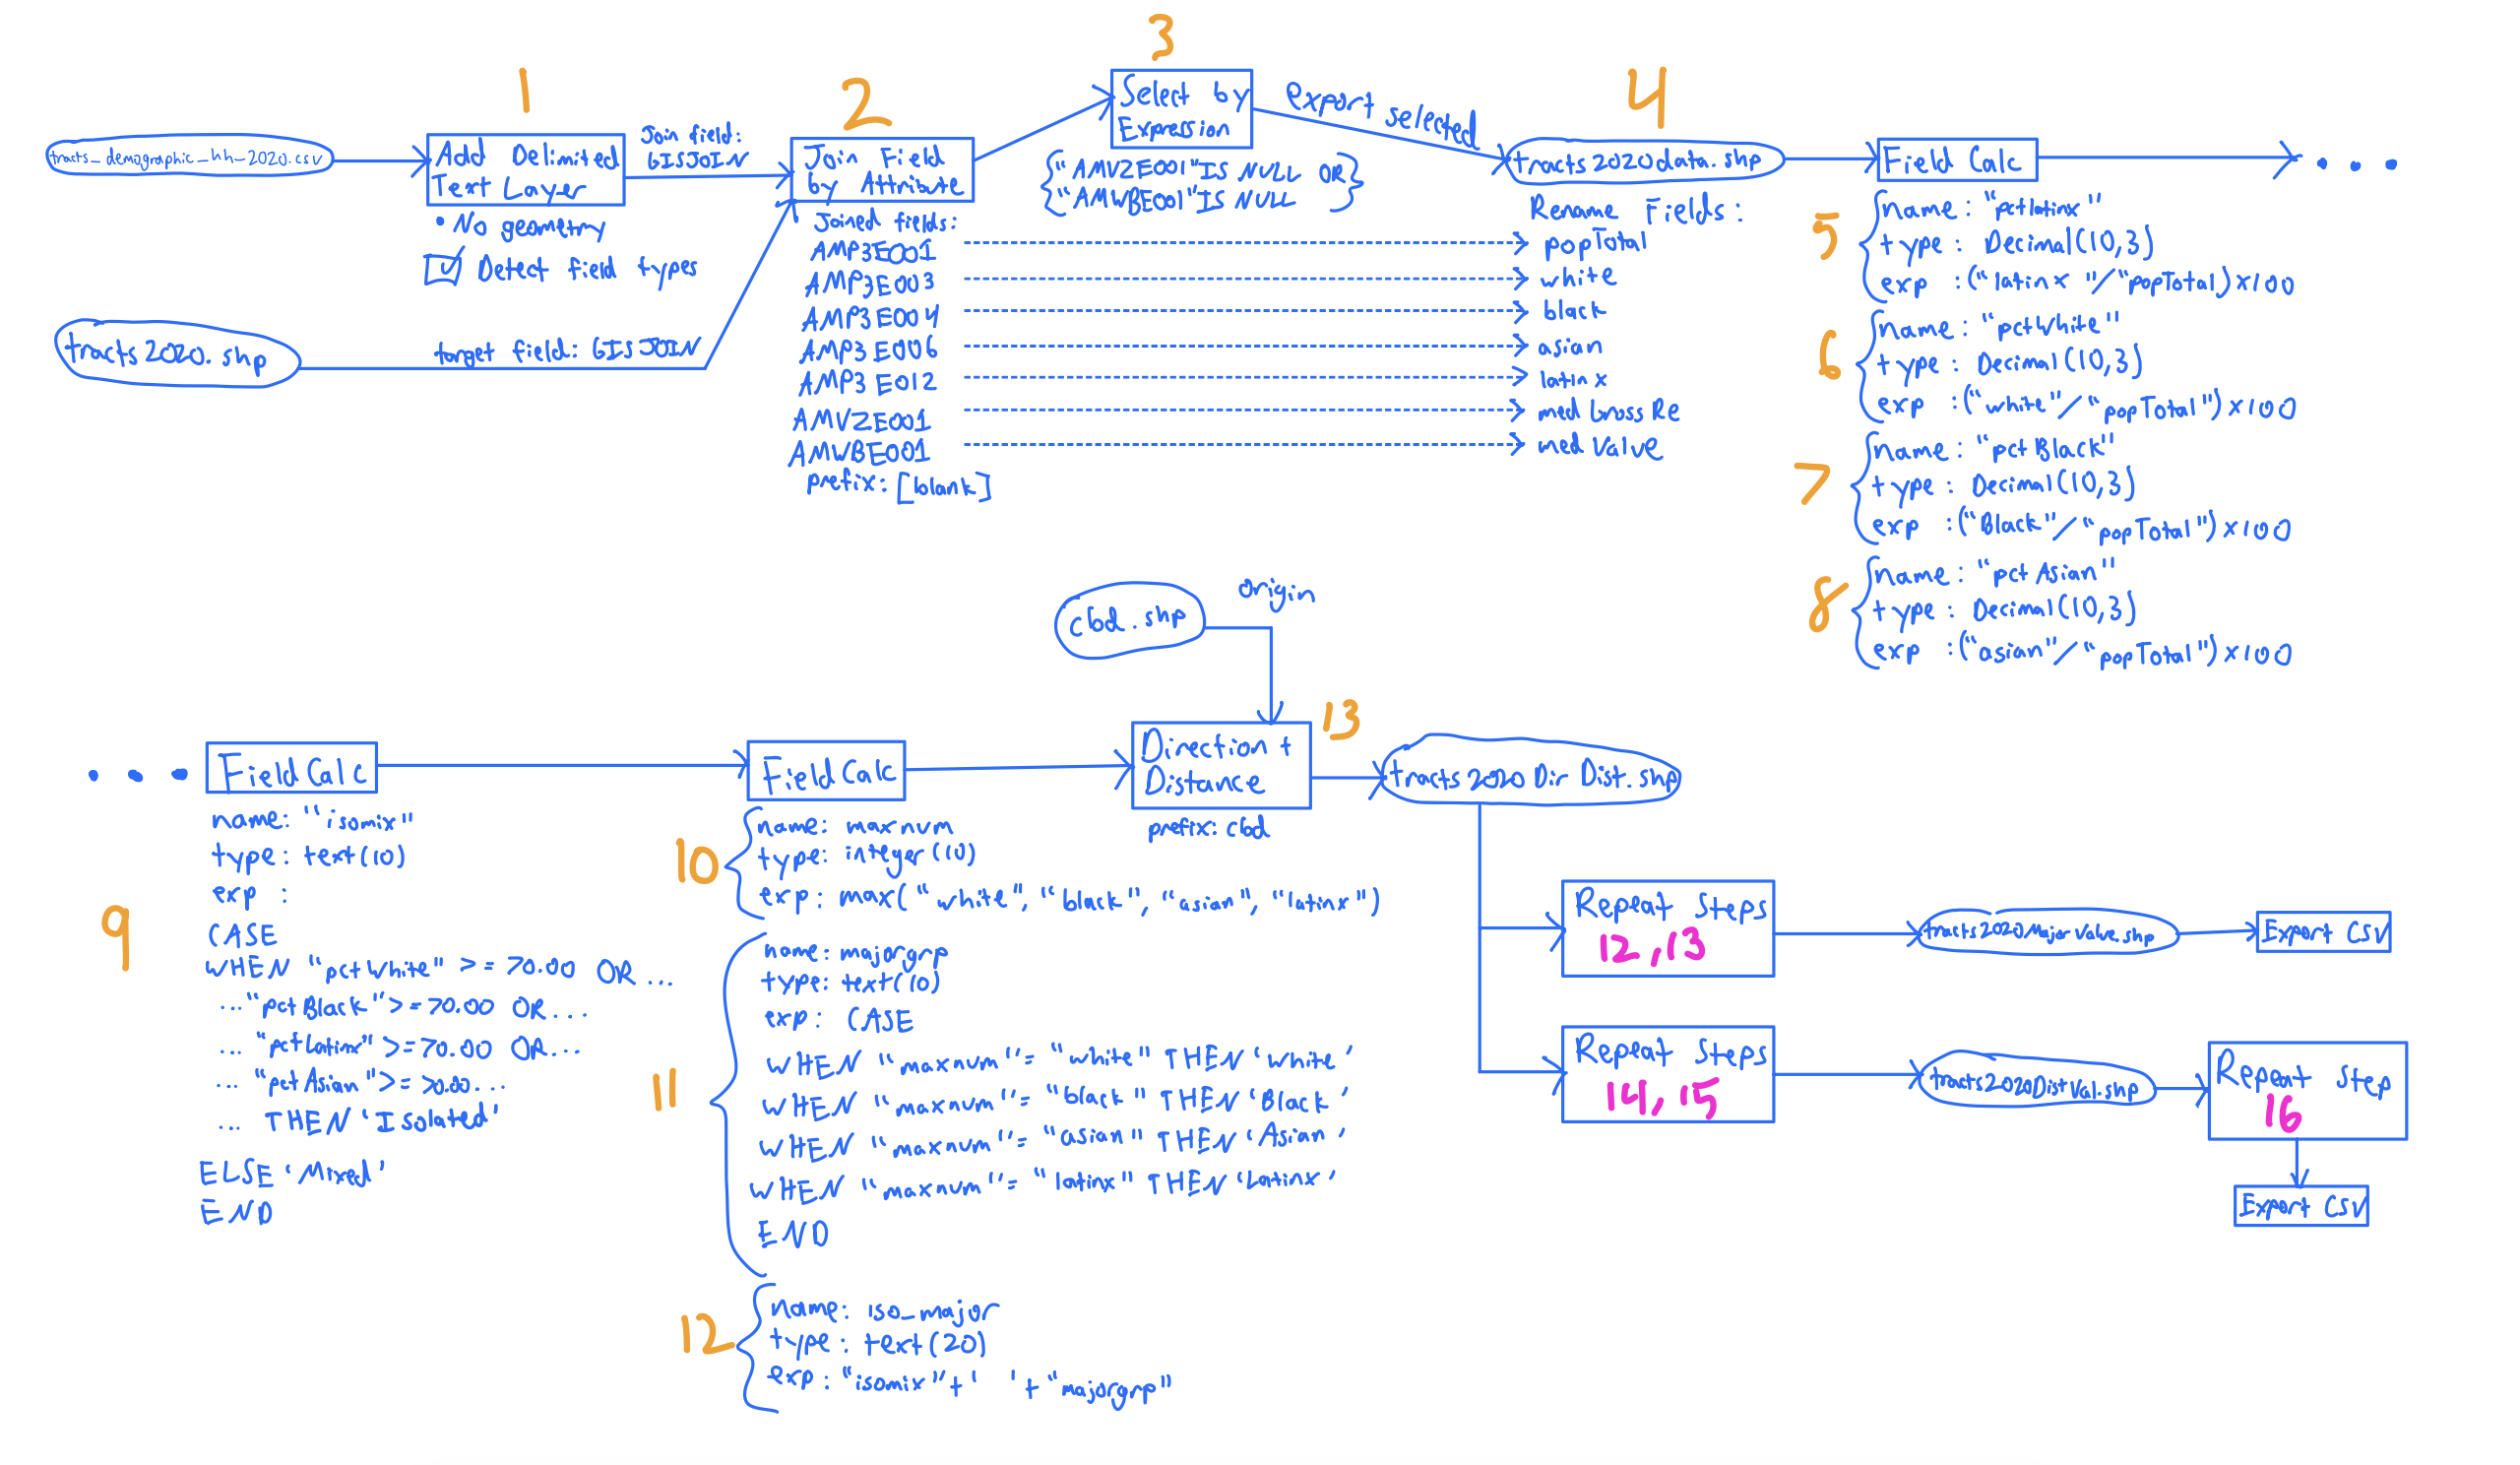 1
tracts_demographic_hh_2020.csv
Add Delimited
Text Layer
• No geometry
☑ Detect field types
Join field:
GISJOIN
tracts2020.shp
target field: GISJOIN
2
Join Field
by Attribute
Joined fields:
AMP3E001
AMP3E003
AMP3E004
AMP3E006
AMP3E012
AMVZE001
AMWBE001
prefix: [blank]
3
Select by
Expression
{"AMVZE001" IS NULL OR
"AMWBE001" IS NULL}
export selected
4
tracts2020data.shp
Rename Fields:
popTotal
white
black
asian
latinx
medGrossRe
medValve
Field Calc
...
5
name: "pctlatinx"
type: Decimal(10,3)
exp: ("latinx"/"popTotal)x100
6
name: "pctWhite"
type: Decimal(10,3)
exp: ("white"/"popTotal")x100
7
name: "pctBlack"
type: Decimal(10,3)
exp: ("Black"/"popTotal")x100
8
name: "pctAsian"
type: Decimal(10,3)
exp: ("asian"/"popTotal")x100
...
Field Calc
9
name: "isomix"
type: text(10)
exp :
CASE
WHEN "pctWhite" >= 70.00 OR...
..."pctBlack">=70.00 OR...
... "pctLatinx">=70.00 OR...
... "pctAsian">= 70.00...
... THEN 'Isolated'
ELSE 'Mixed'
END
Field Calc
10
name: maxnum
type: integer(10)
exp: max("white", "black", "asian", "latinx")
11
name: majorgrp
type: text(10)
exp: CASE
WHEN "maxnum"= "white" THEN 'White'
WHEN "maxnum"= "black" THEN 'Black'
WHEN "maxnum"= "asian" THEN 'Asian'
WHEN "maxnum"= "latinx" THEN 'Latinx'
END
12
name: iso_major
type: text(20)
exp: "isomix"+' '+"majorgrp"
cbd.shp
origin
13
Direction +
Distance
prefix: cbd
tracts2020DirDist.shp
Repeat Steps
12,13
tracts2020MajorValve.shp
Export CSV
Repeat Steps
14,15
tracts2020DistVal.shp
Repeat Step
16
Export CSV